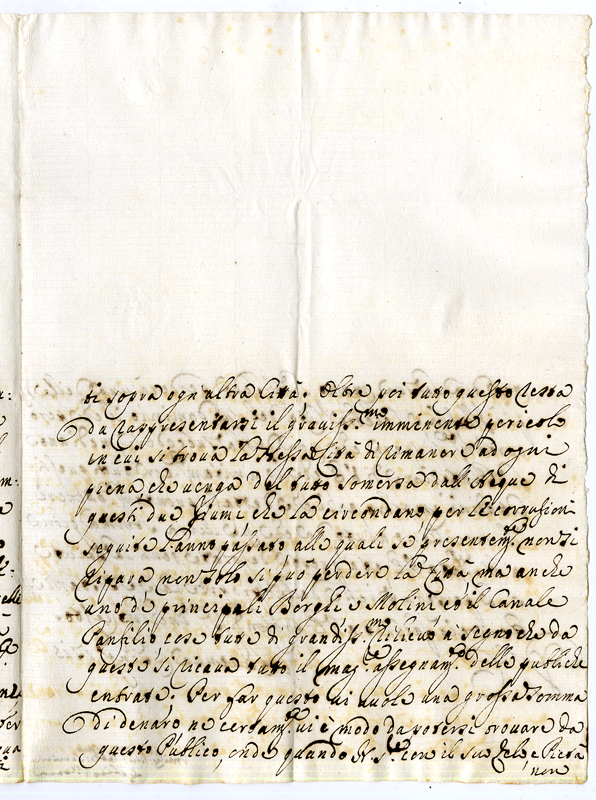 ti sopra ogn'altra Città. Oltre poi tuto questo resta
da rappresentarsi il graviss.mo imminente pericolo
in cui si trova la stessa Città di rimanere ad ogni
piena che venga del tuto somersa dall'Aque di
questi due fiumi che la circondano per le corrusioni
seguite l'anno passato alle quali se presentem.te non si
ripara non solo si può perdere la Città ma anche
uno de principali Borghi e Molini ed il Canale
Panfilio cose tute di grandiss.mo rilievo a' segno che da
queste si ricava tuto il mag.re assegnam.to delle publiche
entrate. Per far questo vi vuole una grossa somma
di denaro ne certam.te vi è modo da potersi trovare da
questo Publico, onde quando V. S. con il suo Zelo, e Pietà
non